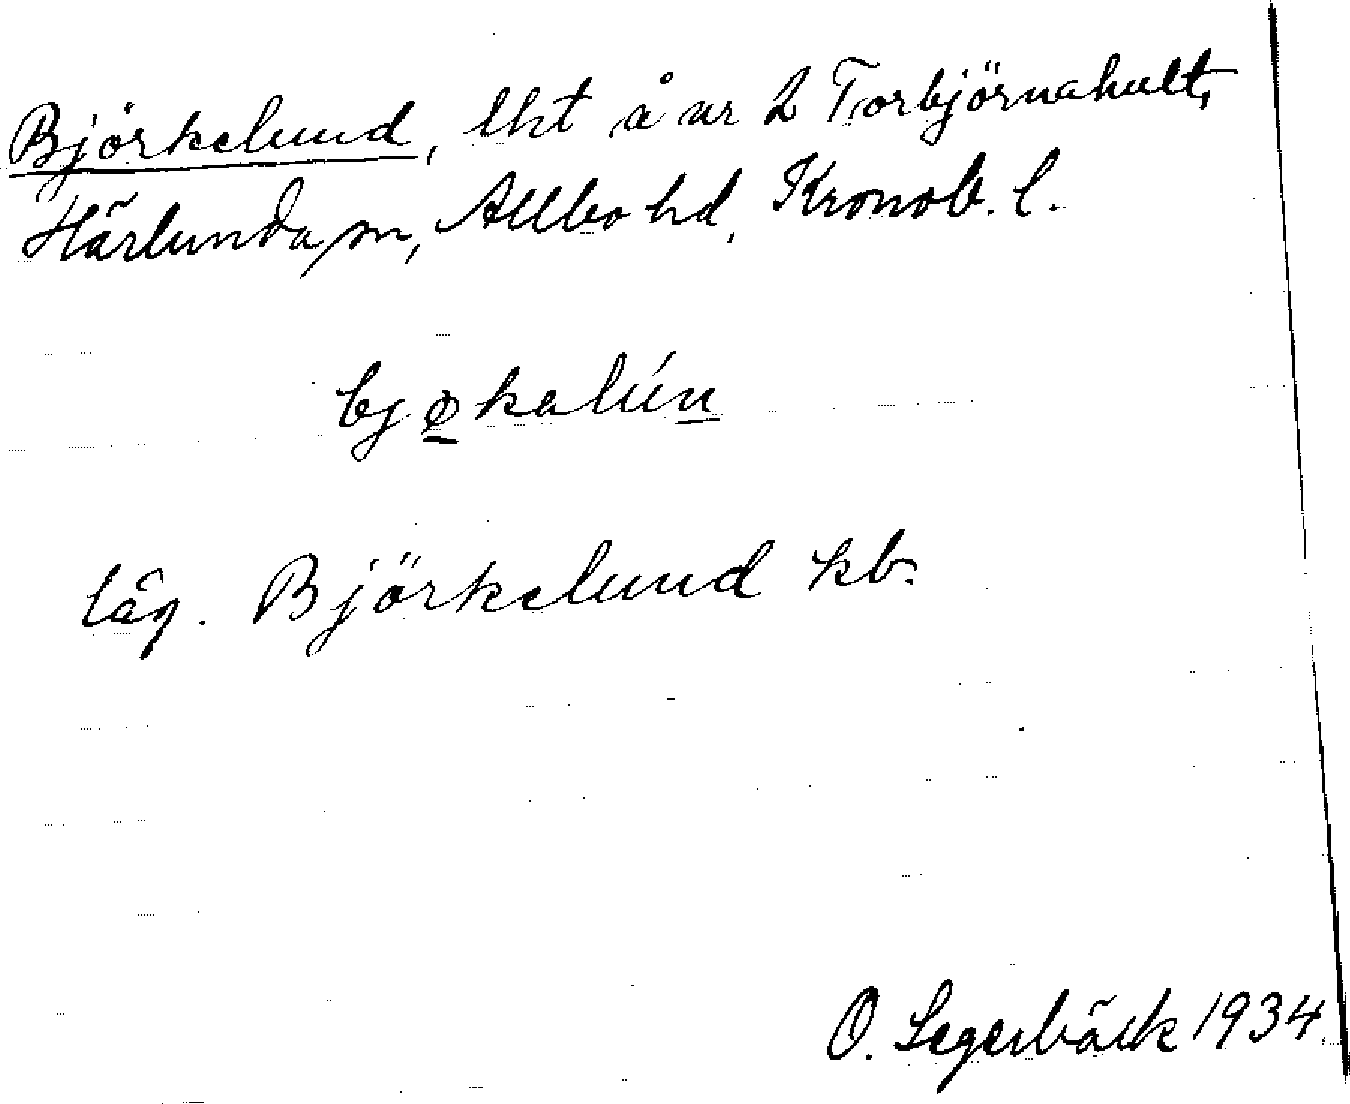 Björkelund, lht å nr 2 Torbjörnahult,
Härlunda sn, Allbo hd, Kronob. l.
bjøkalún
läg. Björkelund kb.
O. Segerbäck 1934